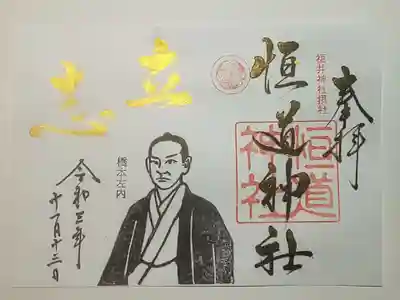 奉拝
福井神社摂社
恒道神社
恒道神社
立志
橋本左内
令和三年
十一月十三日